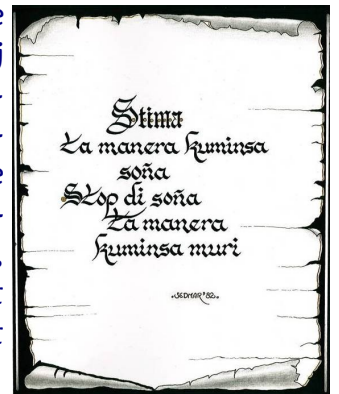 Stima
Ta manera kuminsa
soña
Stop di soña
Ta manera
kuminsa muri
SEDMAR '82.